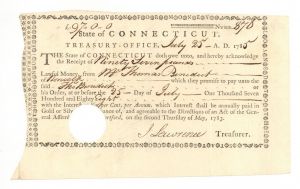 £ 97.0.0 No. 870
State of CONNECTICUT.
TREASURY-OFFICE, July 25 A. D. 1785
THE State of CONNECTICUT doth owe unto, and hereby acknowledge
the Receipt of Ninety Seven pounds
Lawful Money, from Mr Thomas Burdict
which they promise to pay unto the
said Tho Burdick or
his Order, at or before the 25 Day of July One Thousand Seven
Hundred and Eighty eight
for the Interest of Cent. per Annum. which Interest shall be annually paid in
Gold or Silver agreeable to the Directions of an Act of the Gen-
eral Assembly on the second Thursday of May, 1783.
J Lawrence Treasurer.